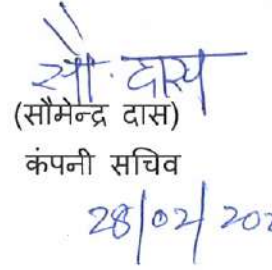 सौ. दास
(सौमेन्द्र दास)
कंपनी सचिव
28/02/202